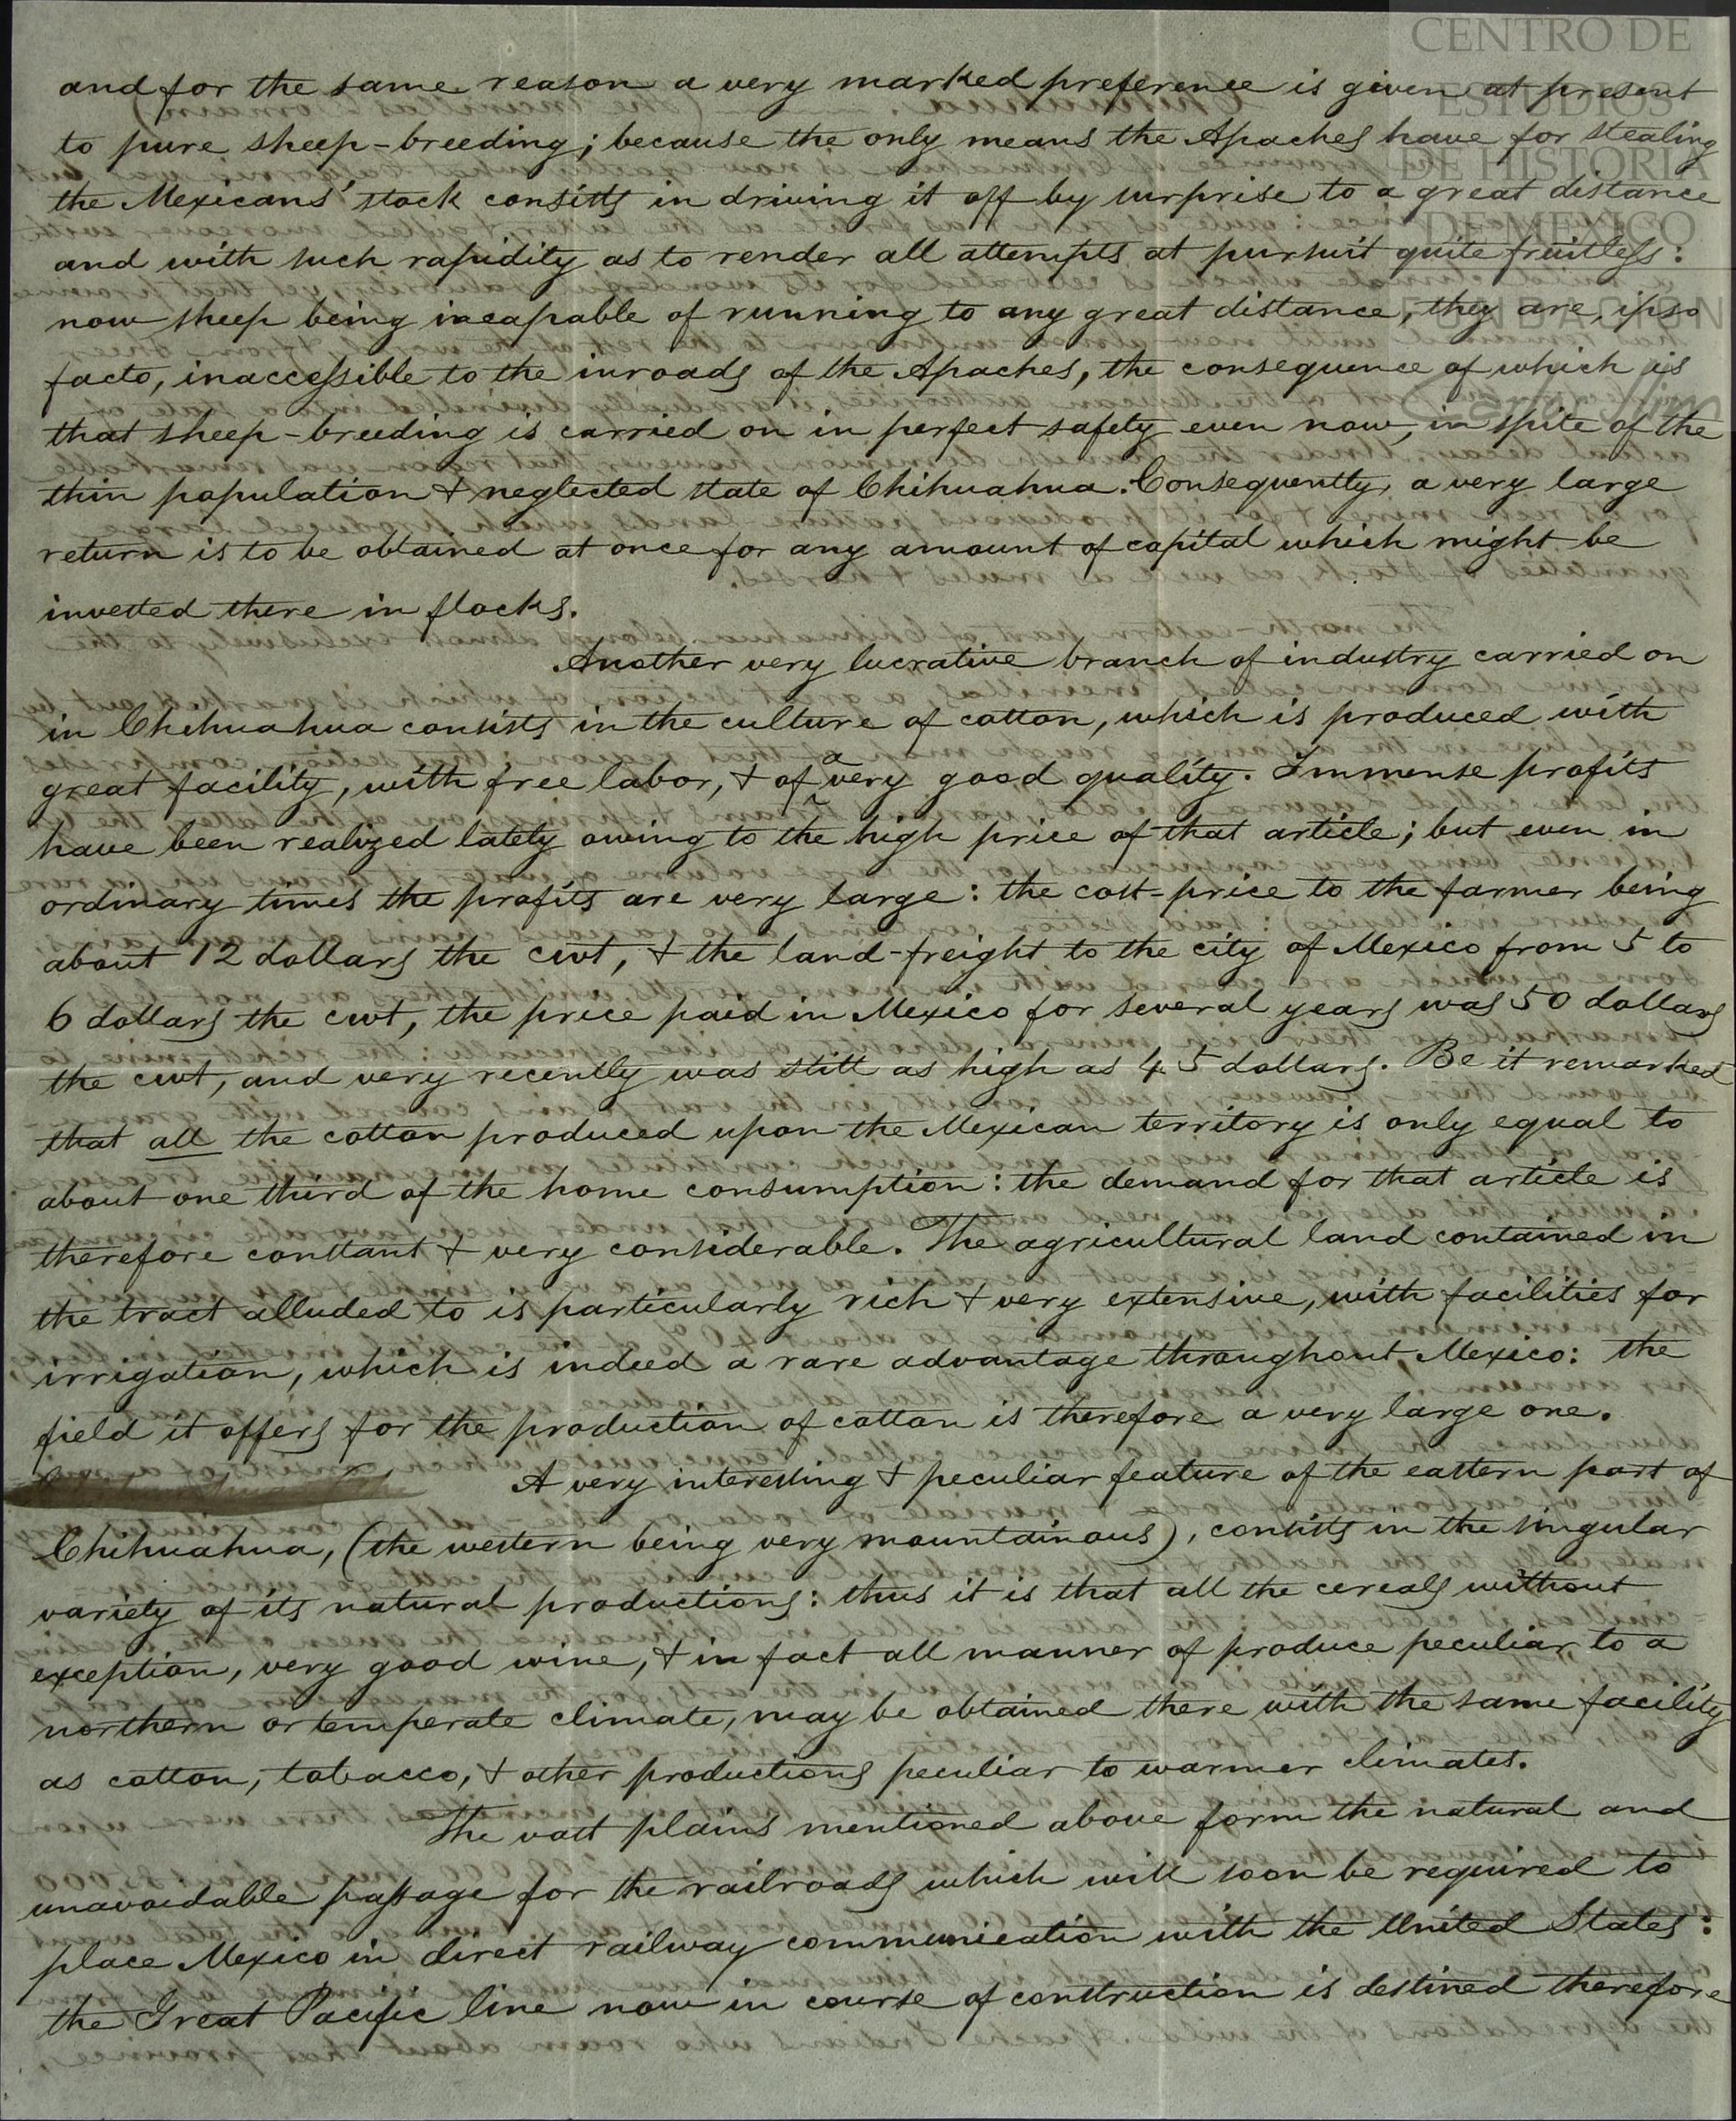 and for the same reason a very marked preference is given at present
to pure sheep-breeding; because the only means the Apaches have for stealing
the Mexicans' stock consists in driving it off by surprise to a great distance
and with such rapidity as to render all attempts at pursuit quite fruitless:
now sheep being incapable of running to any great distance, they are, ipso
facto, inaccessible to the inroads of the Apaches, the consequence of which is
that sheep-breeding is carried on in perfect safety even now, in spite of the
thin population & neglected state of Chihuahua. Consequently, a very large
return is to be obtained at once for any amount of capital which might be
invested there in flocks.
Another very lucrative branch of industry carried on
in Chihuahua consists in the culture of cotton, which is produced with
great facility, with free labor, & of a very good quality. Immense profits
have been realized lately owing to the high price of that article; but even in
ordinary times the profits are very large: the cost-price to the farmer being
about 12 dollars the cwt, & the land-freight to the city of Mexico from 5 to
6 dollars the cwt, the price paid in Mexico for several years was 50 dollars
the cwt, and very recently was still as high as 45 dollars. Be it remarked
that all the cotton produced upon the Mexican territory is only equal to
about one third of the home consumption: the demand for that article is
therefore constant & very considerable. The agricultural land contained in
the tract alluded to is particularly rich & very extensive, with facilities for
irrigation, which is indeed a rare advantage throughout Mexico: the
field it offers for the production of cotton is therefore a very large one.
A very interesting & peculiar feature of the eastern part of
Chihuahua, (the western being very mountainous), consists in the singular
variety of its natural productions: thus it is that all the cereals without
exception, very good wine, & in fact all manner of produce peculiar to a
northern or temperate climate, may be obtained there with the same facility
as cotton, tobacco, & other productions peculiar to warmer climates.
The vast plains mentioned above form the natural and
unavoidable passage for the railroads which will soon be required to
place Mexico in direct railway communication with the United States:
the Great Pacific line now in course of construction is destined therefore
CENTRO DE
ESTUDIOS
DE HISTORIA
DE MEXICO
FUNDACIÓN
Carlos Slim